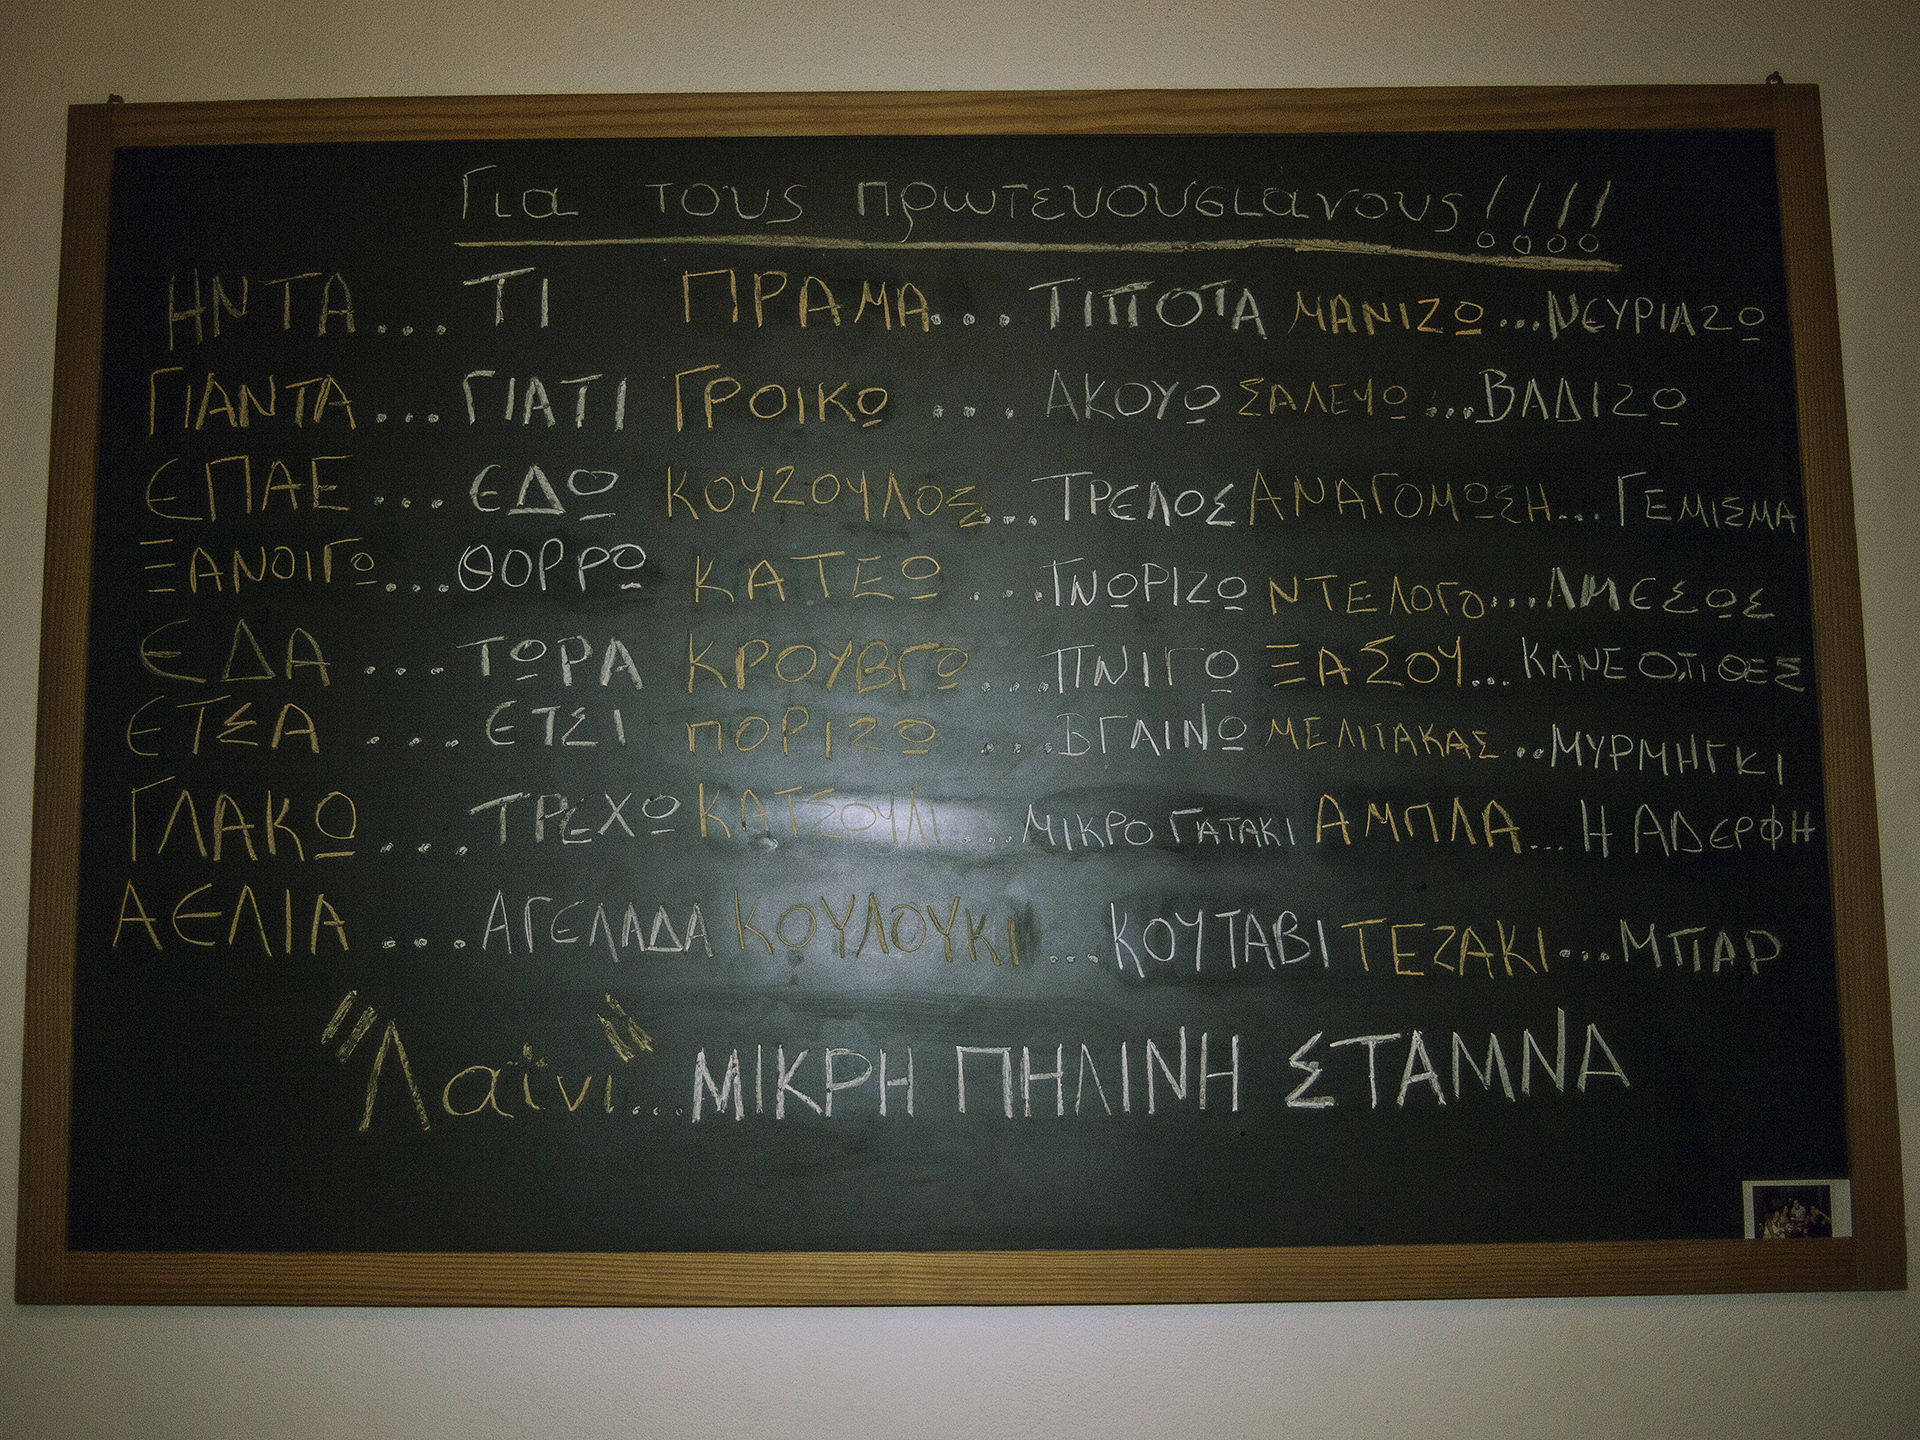 Για τους πρωτευουσιάνους!!!!
ΗΝΤΑ.... ΤΙ ΠΡΑΜΑ.... ΤΙΠΟΤΑ ΜΑΝΙΖΩ...ΝΕΥΡΙΑΖΩ
ΓΙΑΝΤΑ... ΓΙΑΤΙ ΓΡΟΙΚΩ ... ΑΚΟΥΩ ΣΑΛΕΥΩ...ΒΑΔΙΖΩ
ΕΠΑΕ... ΕΔΩ ΚΟΥΖΟΥΛΟΣ... ΤΡΕΛΟΣ ΑΝΑΓΟΜΩΣΗ... ΓΕΜΙΣΜΑ
ΞΑΝΟΙΓΩ...ΘΟΡΡΩ ΚΑΤΕΩ ...ΓΝΩΡΙΖΩ ΝΤΕΛΟΓΟ...ΑΜΕΣΩΣ
ΕΔΑ .... ΤΩΡΑ ΚΡΟΥΒΓΩ ...ΠΝΙΓΩ ΞΑ ΣΟΥ... ΚΑΝΕ Ο,ΤΙ ΘΕΣ
ΕΤΣΑ .... ΕΤΣΙ ΠΟΡΙΖΩ ...ΒΓΑΙΝΩ ΜΕΛΙΤΑΚΑΣ...ΜΥΡΜΗΓΚΙ
ΓΛΑΚΩ.... ΤΡΕΧΩ ΚΑΤΣΟΥΛΙ ...ΜΙΚΡΟ ΓΑΤΑΚΙ ΑΜΠΛΑ... Η ΑΔΕΡΦΗ
ΑΕΛΙΑ .... ΑΓΕΛΑΔΑ ΚΟΥΛΟΥΚΙ ...ΚΟΥΤΑΒΙ ΤΕΖΑΚΙ...ΜΠΑΡ
"Λαΐνι"...ΜΙΚΡΗ ΠΗΛΙΝΗ ΣΤΑΜΝΑ